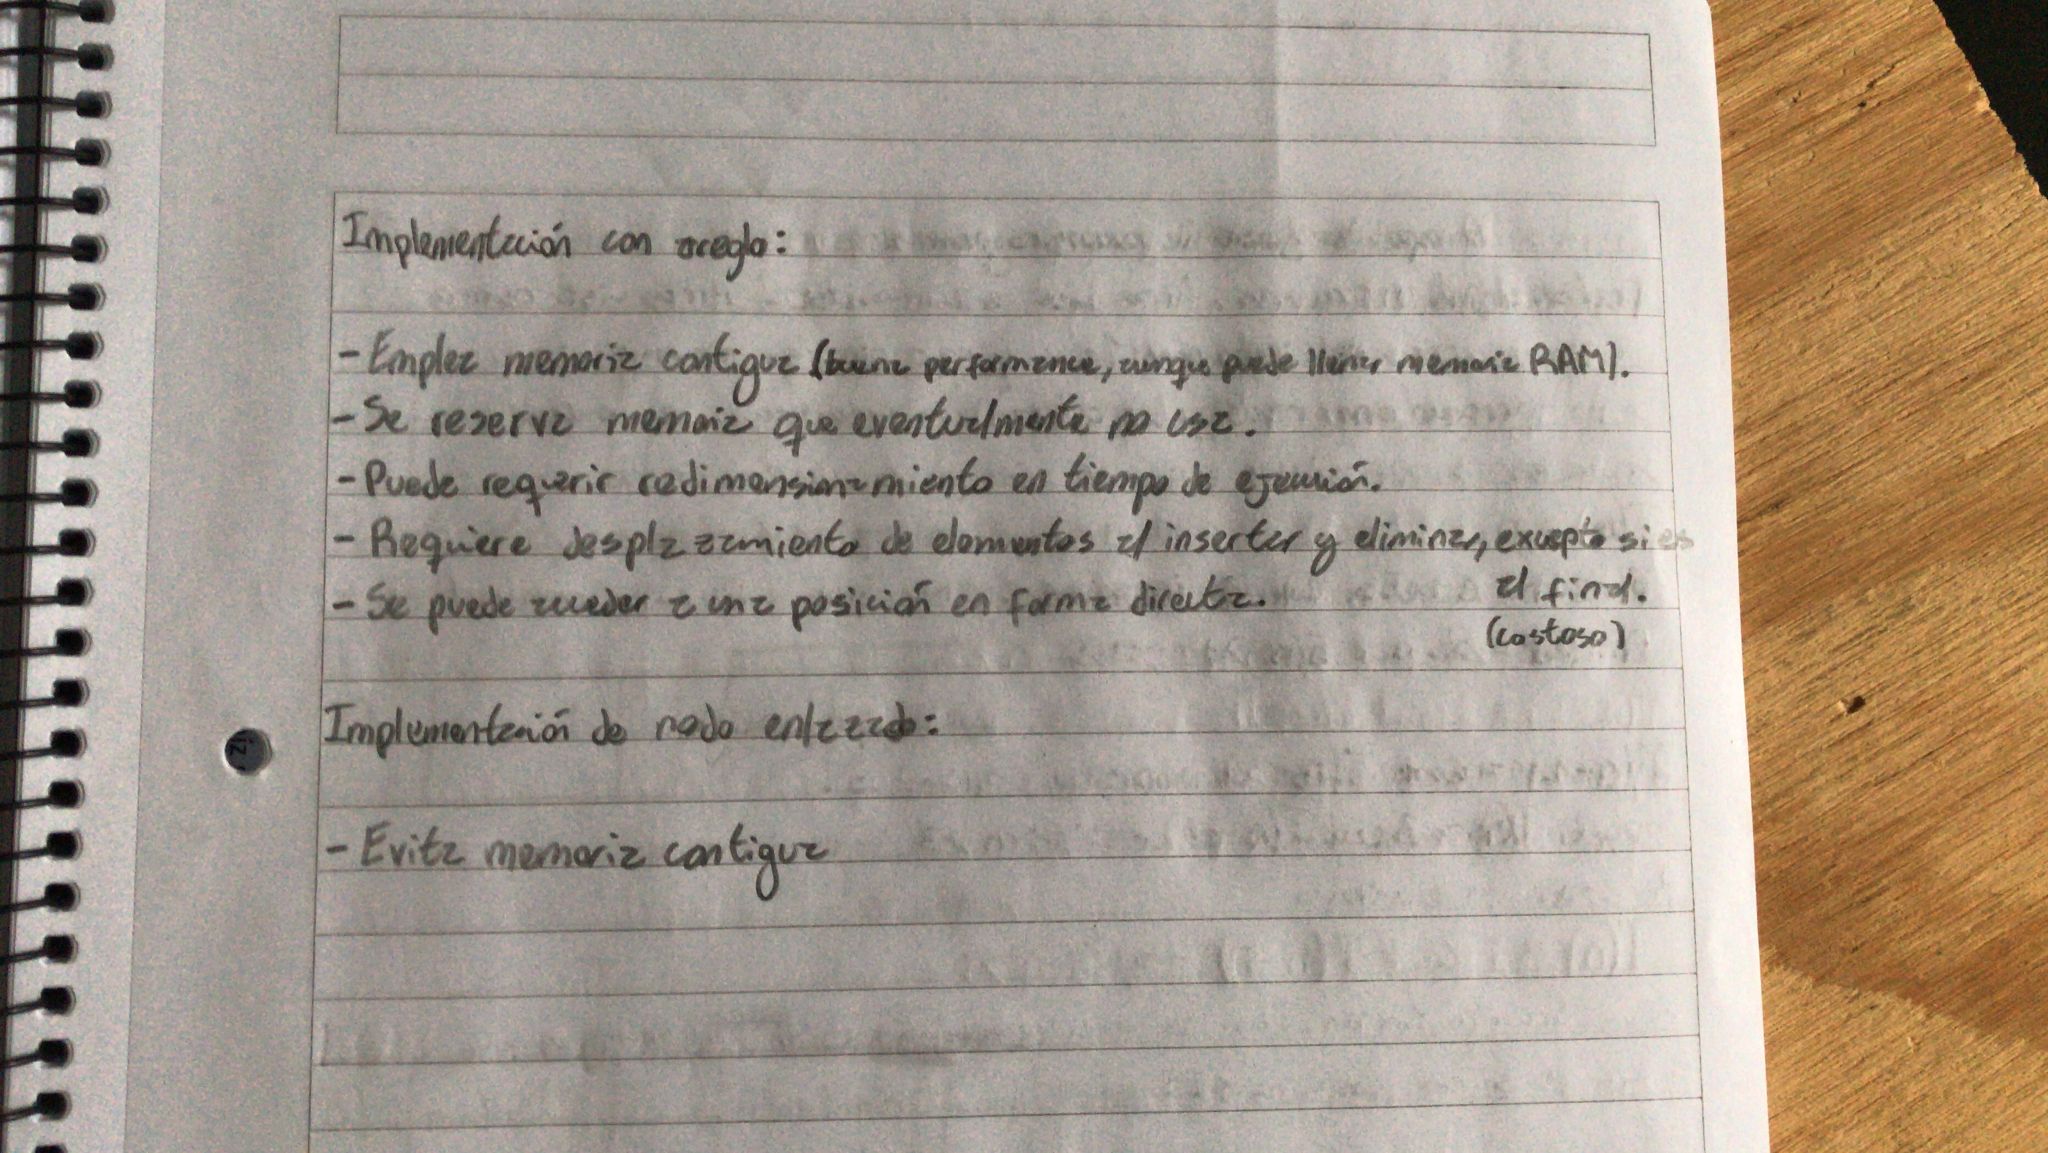 Implementación con areglo:
- Emplea memoria contigua (buena performance, aunque puede llenar memoria RAM).
- Se reserva memoria que eventualmente no usa.
- Puede requerir redimensionamiento en tiempo de ejecución.
- Requiere desplazamiento de elementos al insertar y eliminar, excepto si es
al final.
(costoso)
- Se puede acceder a una posición en forma directa.
Implementación de nodo enlazado:
- Evita memoria contigua